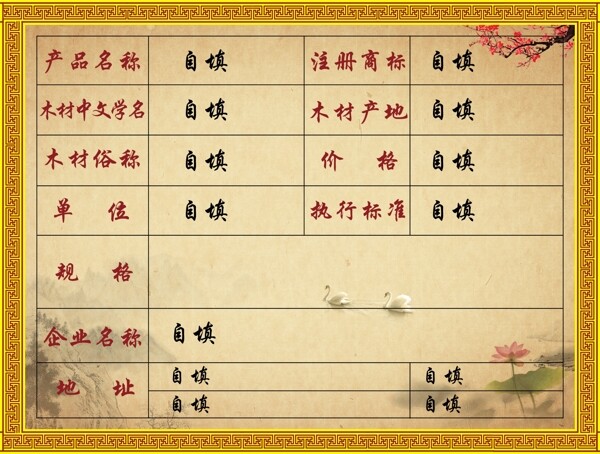 产品名称 自填 注册商标 自填
木材中文学名 自填 木材产地 自填
木材俗称 自填 价格 自填
单位 自填 执行标准 自填
规格
企业名称 自填
地址 自填 自填
自填 自填